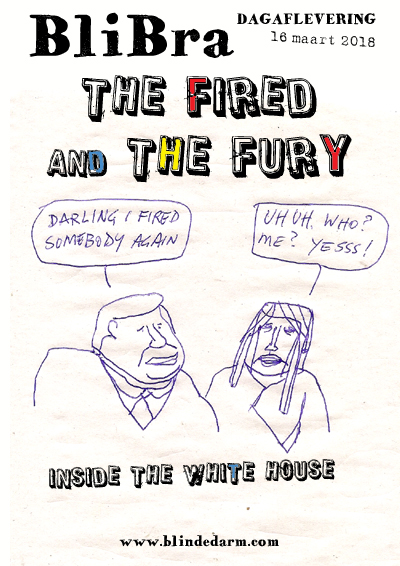 BliBra
DAGAFLEVERING
16 maart 2018
THE FIRED
AND THE FURY
DARLING I FIRED
SOMEBODY AGAIN
UH UH, WHO?
ME? YESSS!
INSIDE THE WHITE HOUSE
www.blindedarm.com